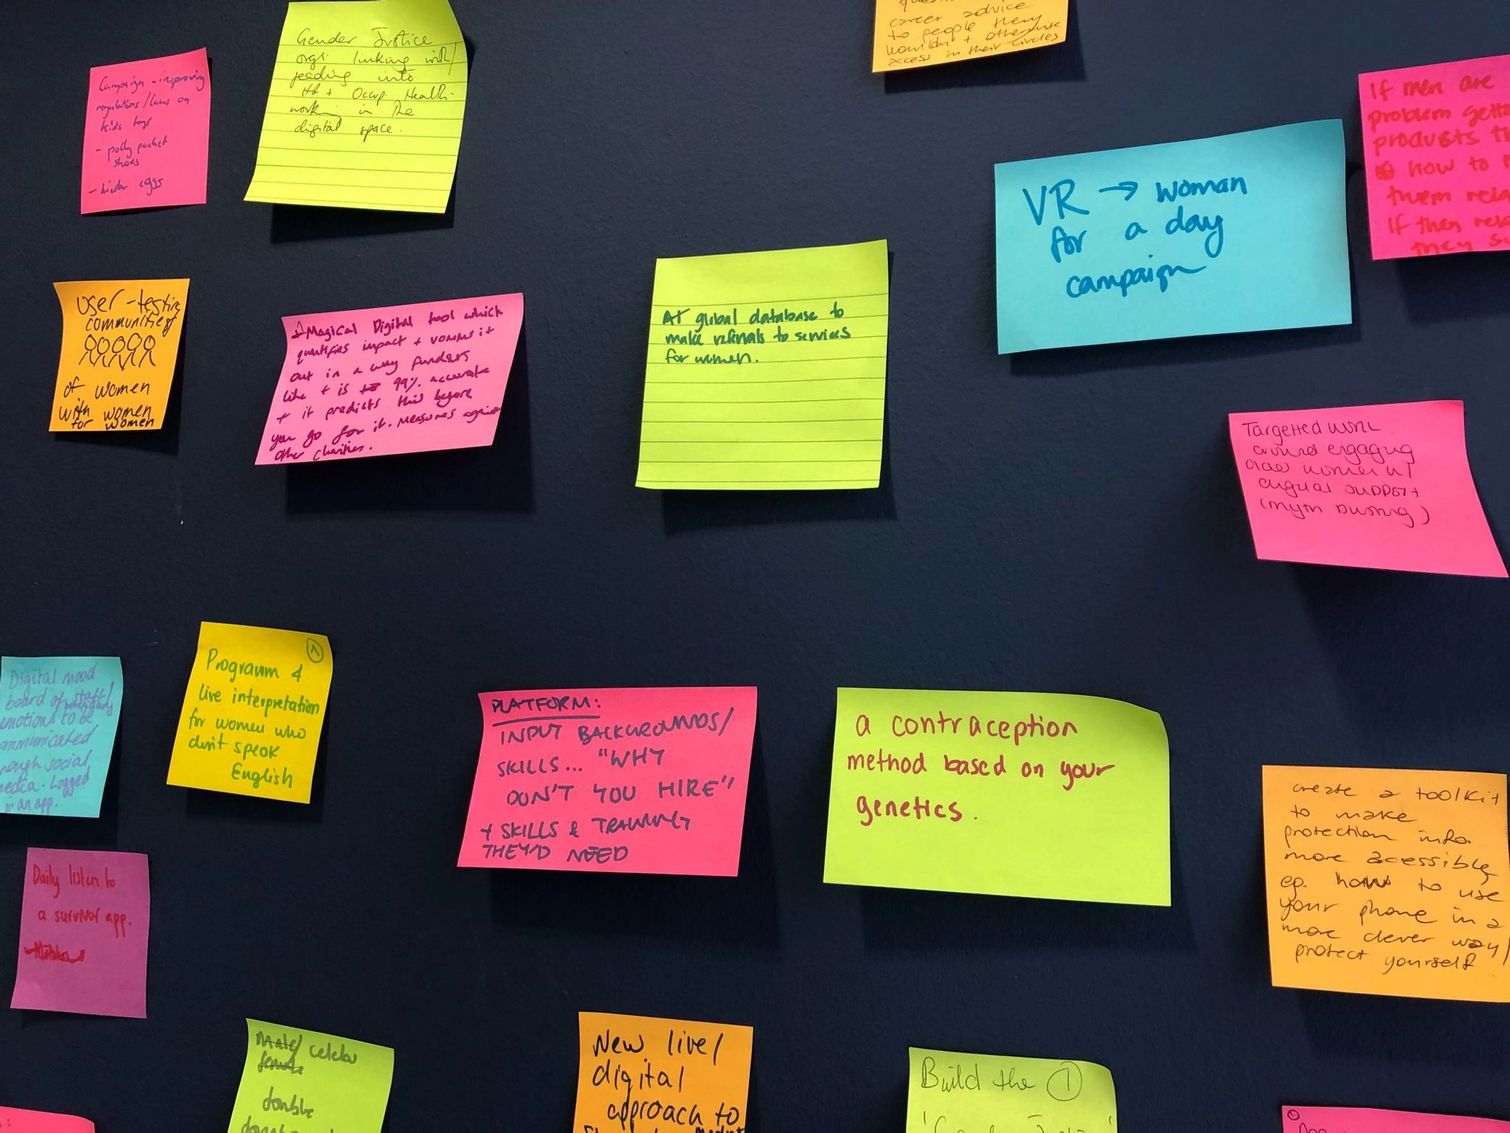 Campaign - improving
regulations/laws on
kids toys
- polly pocket
shoes
- kinder eggs
Gender Justice
orgs linking with/
feeding into
H+ Occup. Health
working in the
digital space.
career advice
to people they
wouldn't otherwise
access in their circles
If men are
problem
products
how to
them
if then
they
VR → woman
for a day
campaign
User-testing
communities
of women
with women
for women
Magical Digital tool which
quantifies impact + vomits it
out in a way funders
like + is 99% accurate
+ it predicts this before
you go for it. Measures against
other charities.
global database to
make referrals to services
for women.
Targetted work
around engaging
women w/
digital support
Digital mood
board of staff/
emotions to be
media. Logged
in an app.
Programm 4
live interpretation
for women who
don't speak
English
PLATFORM:
INPUT BACKGROUNDS/
SKILLS... "WHY
DON'T YOU HIRE"
+ SKILLS & TRAINING
THEY'D NEED
a contraception
method based on your
genetics.
create a toolkit
to make
protection info.
more acessible,
eg. how to use
your phone in a
more clever way/
protect yourself
Daily listen to
a survivor app.
Male/ celebs
female
double
New live/
digital
approach to
Build the 1